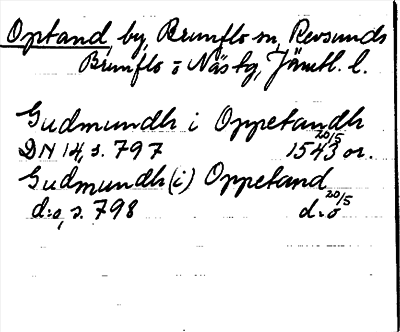 Optand, by, Brunflo sn, Revsunds
Brunflo o Näs tg, Jämtl. l.
Gudmundh i Oppetandh
DN 14, s. 797 20/5 1543 or.
Gudmundh (i) Oppetand
d:o, s. 798 d:o 20/5